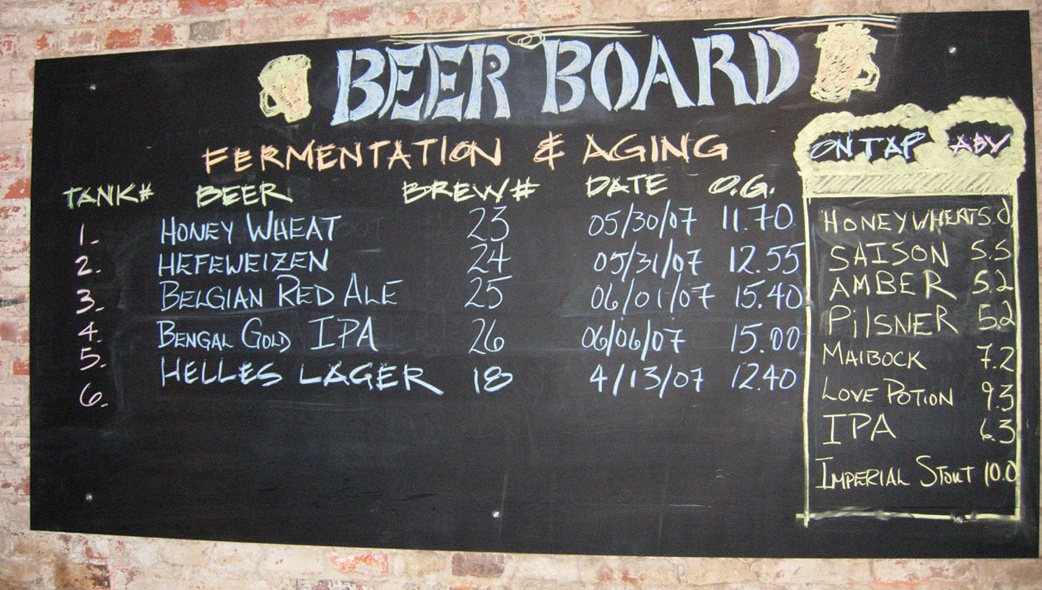 BEER BOARD
FERMENTATION & AGING
TANK# BEER BREW# DATE O.G.
1. HONEY WHEAT 23 05/30/07 11.70
2. HEFEWEIZEN 24 05/31/07 12.55
3. BELGIAN RED ALE 25 06/01/07 15.40
4. BENGAL GOLD IPA 26 06/06/07 15.00
5. HELLES LAGER 18 4/13/07 12.40
6.
ON TAP ABV
HONEY WHEAT 5.0
SAISON 5.5
AMBER 5.2
PiLSNER 5.2
MAIBOCK 7.2
LOVE POTION 9.3
IPA 6.3
IMPERIAL STOUT 10.0